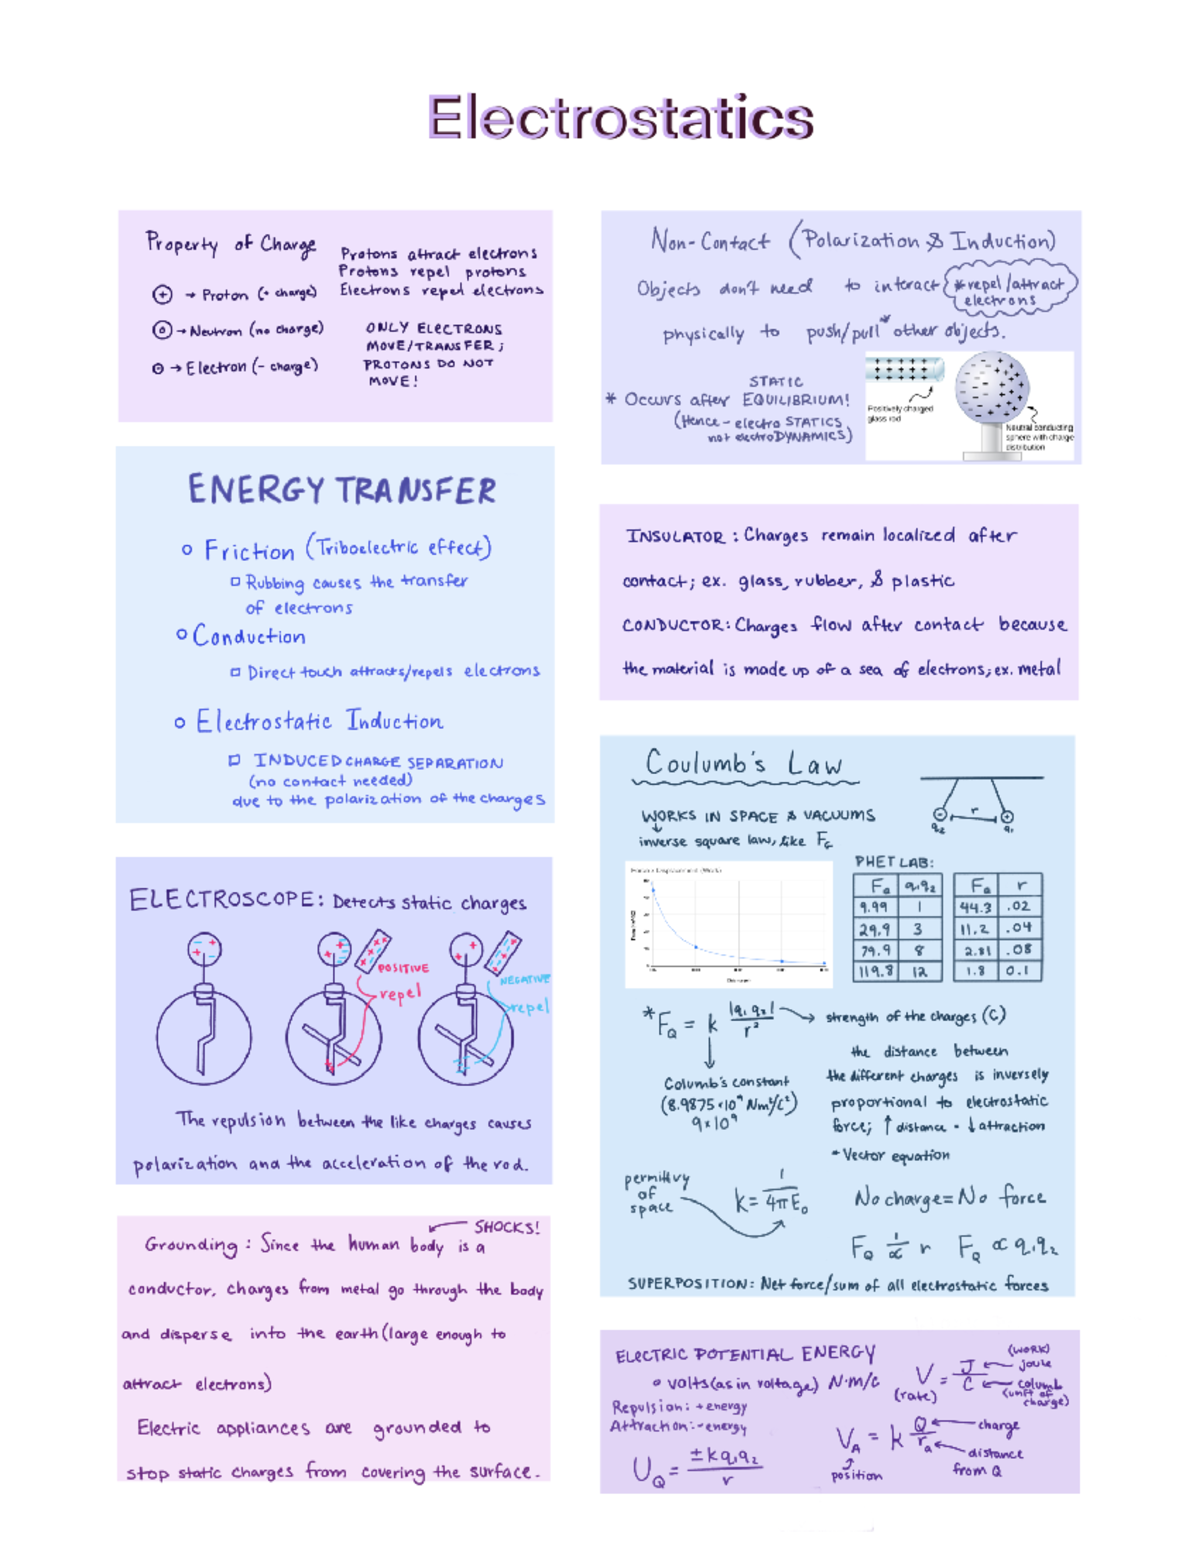 Electrostatics
Property of Charge
+ → Proton (+ charge)
o → Neutron (no charge)
→ Electron (- charge)
Protons attract electrons
Protons repel protons
Electrons repel electrons
ONLY ELECTRONS
MOVE/TRANSFER;
PROTONS DO NOT
MOVE!
ENERGY TRANSFER
Friction (Triboelectric effect)
Rubbing causes the transfer
of electrons
Conduction
Direct touch attracts/repels electrons
Electrostatic Induction
INDUCED CHARGE SEPARATION
(no contact needed)
due to the polarization of the charges
ELECTROSCOPE: Detects static charges
POSITIVE
repel
NEGATIVE
repel
The repulsion between the like charges causes
polarization and the acceleration of the rod.
SHOCKS!
Grounding: Since the human body is a
conductor, charges from metal go through the body
and disperse into the earth (large enough to
attract electrons)
Electric appliances are grounded to
stop static charges from covering the surface.
Non-Contact (Polarization & Induction)
Objects don't need to interact
*repel/attract
electrons
physically to push/pull* other objects.
STATIC
* Occurs after EQUILIBRIUM!
(Hence - electro STATICS
not electroDYNAMICS)
Positively charged
glass rod
Neutral conducting
sphere with charge
distribution
INSULATOR: Charges remain localized after
contact; ex. glass, rubber, & plastic
CONDUCTOR: Charges flow after contact because
the material is made up of a sea of electrons; ex. metal
Coulumb's Law
WORKS IN SPACE & VACUUMS
inverse square law, like FG
r
q2
q1
PHET LAB:
FQ q1q2
9.99 1
29.9 3
79.9 8
119.8 12
FQ r
44.3 .02
11.2 .04
2.81 .08
1.8 0.1
*FQ = k |q1 q2| / r² → strength of the charges (C)
Columb's constant
(8.9875×10⁹ Nm²/C²)
9×10⁹
the distance between
the different charges is inversely
proportional to electrostatic
force; ↑ distance = ↓ attraction
* Vector equation
permittivy
of
space
k = 1 / 4πE₀
No charge = No force
FQ 1/∝ r FQ ∝ q1q2
SUPERPOSITION: Net force/sum of all electrostatic forces
ELECTRIC POTENTIAL ENERGY
volts (as in voltage) N·m/C
Repulsion: + energy
Attraction: - energy
UQ = ±kq1q2 / r
(work)
V = J ← joule
(rate) C ← columb
(unit of
charge)
VA = k Q / ra
charge
distance
from Q
position